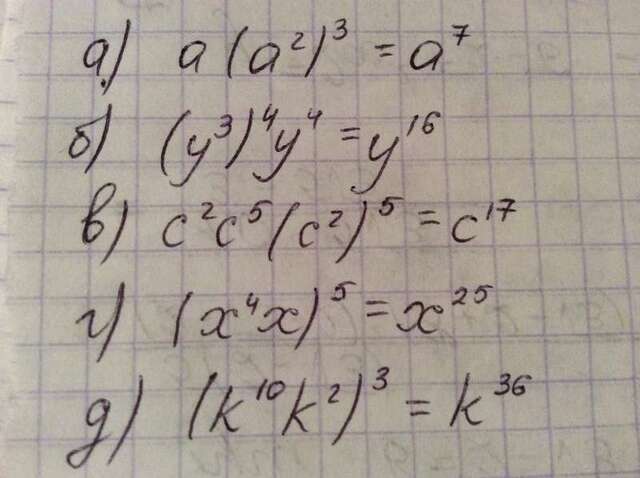 а) a(a²)³ = a⁷
б) (y³)⁴y⁴ = y¹⁶
в) c²c⁵(c²)⁵ = c¹⁷
г) (x⁴x)⁵ = x²⁵
д) (k¹⁰k²)³ = k³⁶